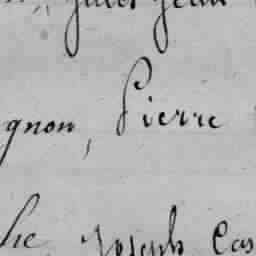 Jules Jean
gnon, Pierre
Joseph Cas